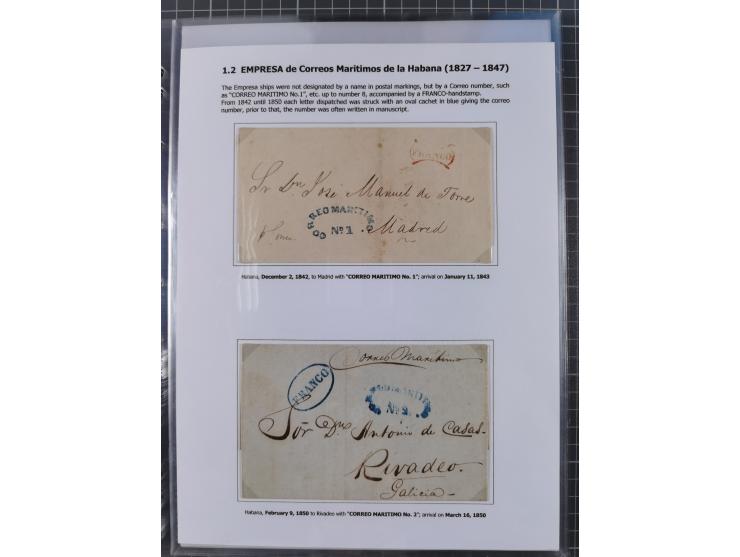 1.2 EMPRESA de Correos Maritimos de la Habana (1827 – 1847)
The Empresa ships were not designated by a name in postal markings, but by a Correo number, such
as "CORREO MARITIMO No.1", etc. up to number 8, accompanied by a FRANCO-handstamp.
From 1842 until 1850 each letter dispatched was struck with an oval cachet in blue giving the correo
number, prior to that, the number was often written in manuscript.
FRANCO
Sr Dn José Manuel de Torre
CORREO MARITIMO
Nº 1.
Madrid
Habana, December 2, 1842, to Madrid with "CORREO MARITIMO No. 1"; arrival on January 11, 1843
Correo Marítimo
FRANCO
Nº 2.
Sör Dn Antonio de Casas.
Rivadeo.
Galicia
Habana, February 9, 1850 to Rivadeo with "CORREO MARITIMO No. 2"; arrival on March 16, 1850